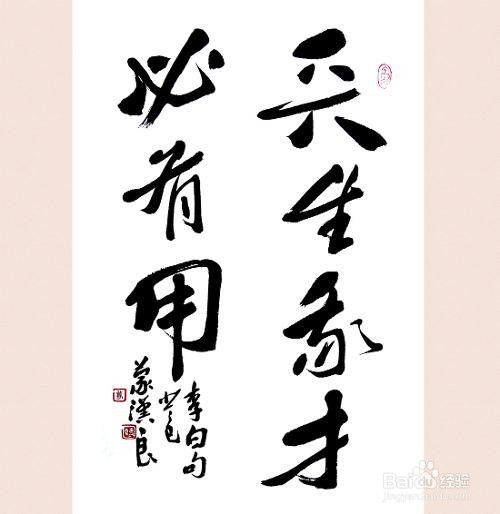 天生我才
必有用
李白句
蒙漢良
Baidu 经验
jingyan.baidu.com